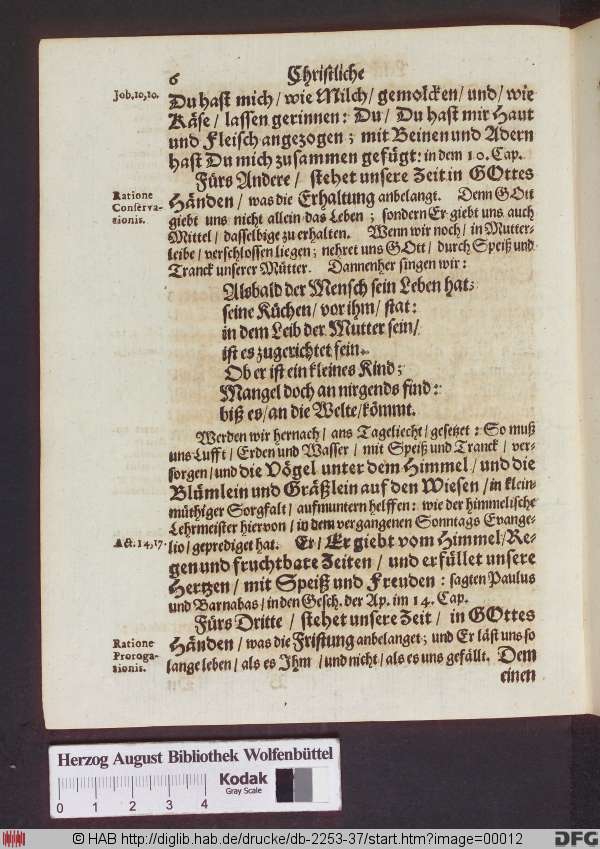 6 Christliche
Job. 10, 10.
Du hast mich/ wie Milch/ gemolcken/ und/ wie
Käse/ lassen gerinnen: Du/ Du hast mir Haut
und Fleisch angezogen; mit Beinen und Adern
hast Du mich zusammen gefügt: in dem 10. Cap.
Fürs Andere/ stehet unsere Zeit in GOttes
Ratione
Conserva-
tionis.
Händen/ was die Erhaltung anbelangt. Denn GOtt
giebt uns nicht allein das Leben; sondern Er giebt uns auch
Mittel/ dasselbige zu erhalten. Wenn wir noch/ in Mutter-
leibe/ verschlossen liegen; nehret uns GOtt/ durch Speiß und
Tranck unserer Mütter. Dannenher singen wir:
Alsbald der Mensch sein Leben hat;
seine Küchen/ vor ihm/ stat:
in dem Leib der Mutter sein/
ist es zugerichtet fein.
Ob er ist ein kleines Kind;
Mangel doch an nirgends find:
biß es/ an die Welte/ kömmt.
Werden wir hernach/ ans Tageliecht/ gesetzet: So muß
uns Lufft/ Erden und Wasser/ mit Speiß und Tranck/ ver-
sorgen/ und die Vögel unter dem Himmel/ und die
Blümlein und Gräßlein auf den Wiesen/ in klein-
müthiger Sorgfalt/ aufmuntern helffen: wie der himmelische
Lehrmeister hiervon/ in dem vergangenen Sonntags Evange-
Act. 14, 17.
lio/ geprediget hat. Er/ Er giebt vom Himmel/ Re-
gen und fruchtbare Zeiten/ und erfüllet unsere
Hertzen/ mit Speiß und Freuden: sagten Paulus
und Barnabas/ in den Gesch. der Ap. im 14. Cap.
Fürs Dritte/ stehet unsere Zeit/ in GOttes
Ratione
Proroga-
tionis.
Händen/ was die Fristung anbelanget; und Er läst uns so
lange leben/ als es Ihm/ und nicht/ als es uns gefällt. Dem
einen
Herzog August Bibliothek Wolfenbüttel
0 1 2 3 4
Kodak
Gray Scale
© HAB http://diglib.hab.de/drucke/db-2253-37/start.htm?image=00012
DFG